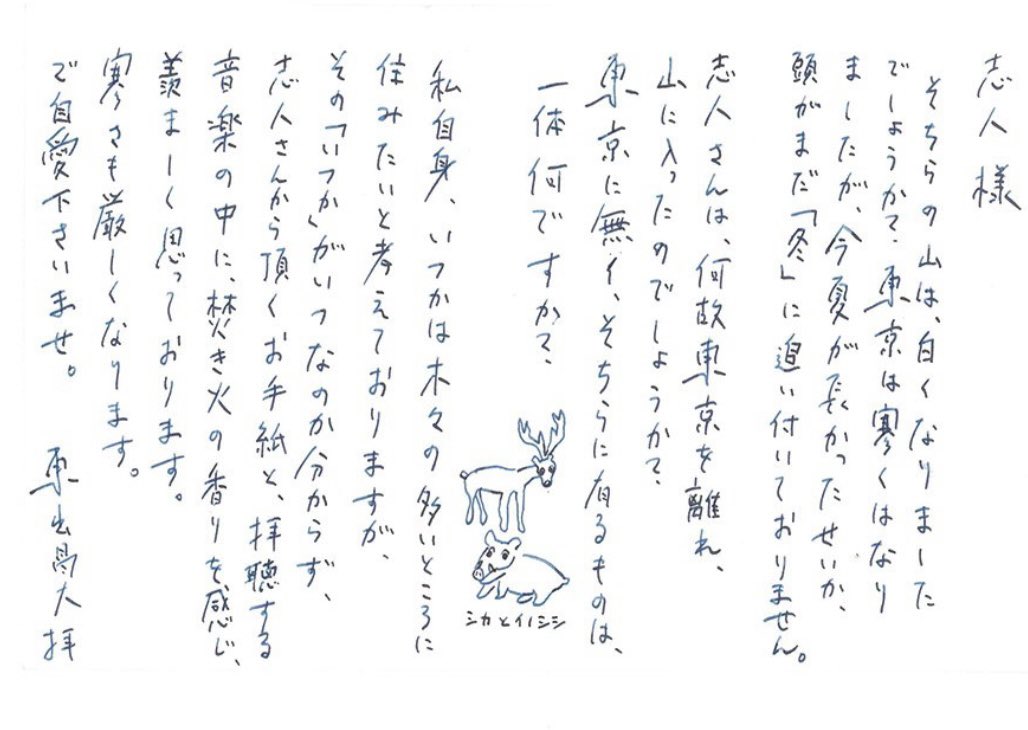 志人様
そちらの山は、白くなりました
でしょうか？東京は寒くはなり
ましたが、今夏が長かったせいか、
頭がまだ「冬」に追い付いておりません。
志人さんは、何故東京を離れ、
山に入ったのでしょうか？
東京に無く、そちらに有るものは、
一体何ですか？
シカとイノシシ
私自身、いつかは木々の多いところに
住みたいと考えておりますが、
その「いつか」がいつなのか分からず、
志人さんから頂くお手紙と、拝聴する
音楽の中に、焚き火の香りを感じ、
羨ましく思っております。
寒さも厳しくなります。
ご自愛下さいませ。　東出昌大 拝